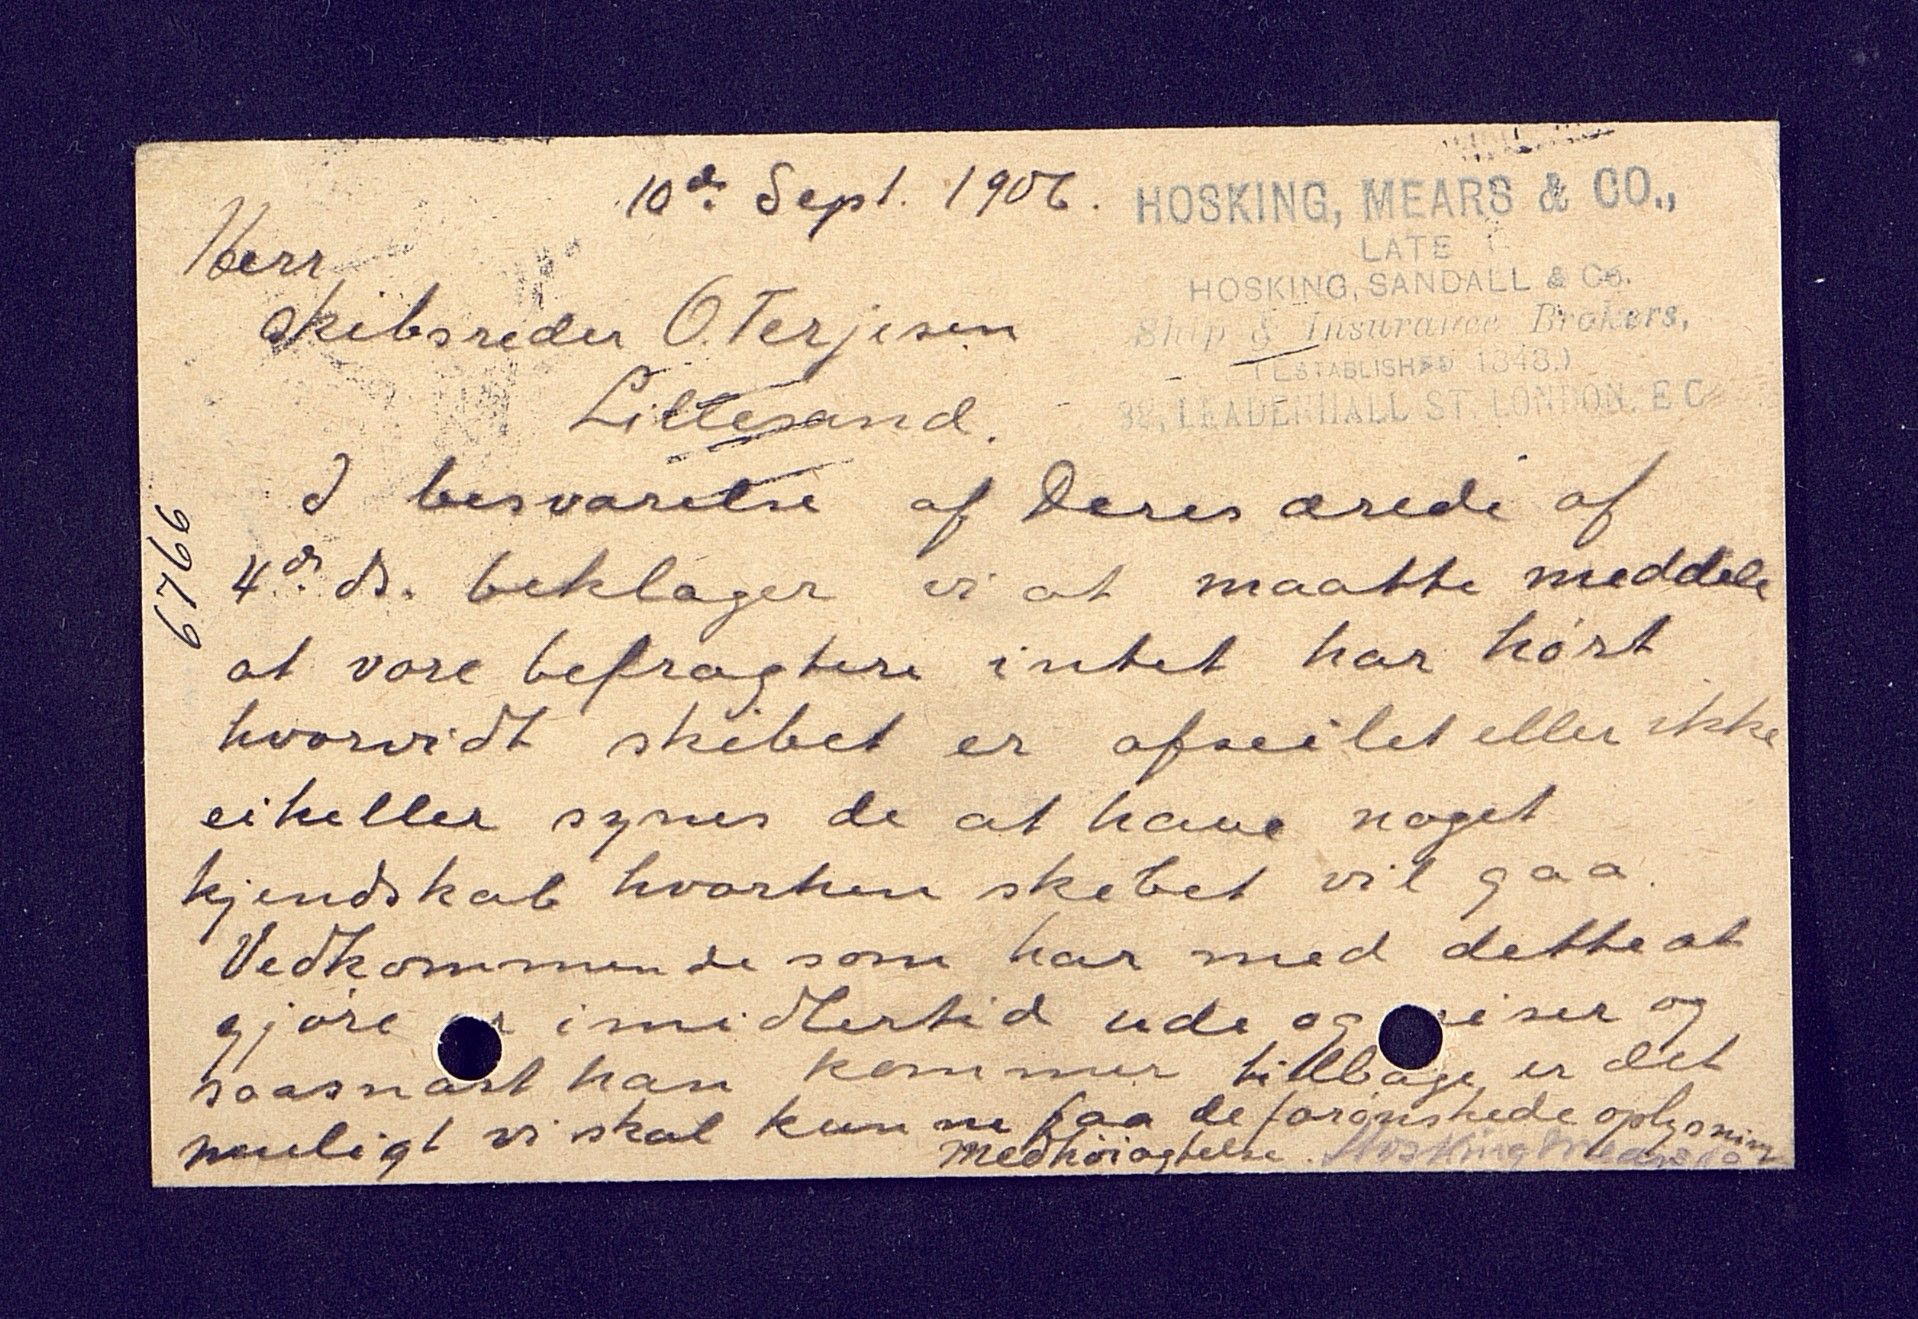 10de Sept. 1906.
HOSKING, MEARS & CO.,
LATE
HOSKING, SANDALL & Co.
Ship & Insurance Brokers,
(ESTABLISHED 1848.)
38, LEADENHALL ST. LONDON. E C
Herr
Skibsreder O. Terjesen
Lillesand.
I besvarelse af Deres ærede af
4de ds. beklager vi at maatte meddele
at vore befragtere intet har hørt
hvorvidt skibet er afseilet eller ikke
eiheller synes de at have noget
kjendskab hvorhen skibet vil gaa.
Vedkommende som har med dette at
gjøre er imidlertid ude og reiser og
saasnart han kommer tilbage er det
muligt vi skal kunne faa de forønskede oplysnin
Med høiagtelse. Hosking Mears & Co
6766